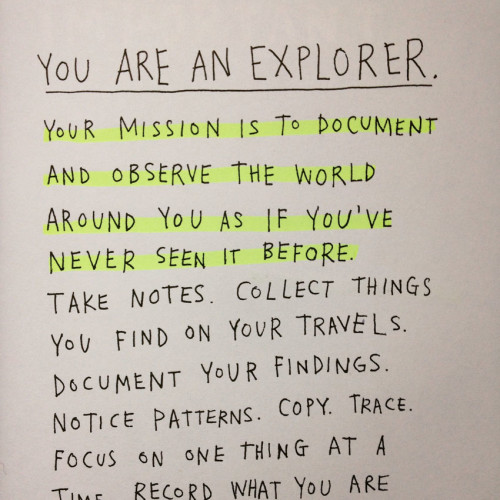 YOU ARE AN EXPLORER.
YOUR MISSION IS TO DOCUMENT
AND OBSERVE THE WORLD
AROUND YOU AS IF YOU'VE
NEVER SEEN IT BEFORE.
TAKE NOTES. COLLECT THINGS
YOU FIND ON YOUR TRAVELS.
DOCUMENT YOUR FINDINGS.
NOTICE PATTERNS. COPY. TRACE.
FOCUS ON ONE THING AT A
TIME. RECORD WHAT YOU ARE